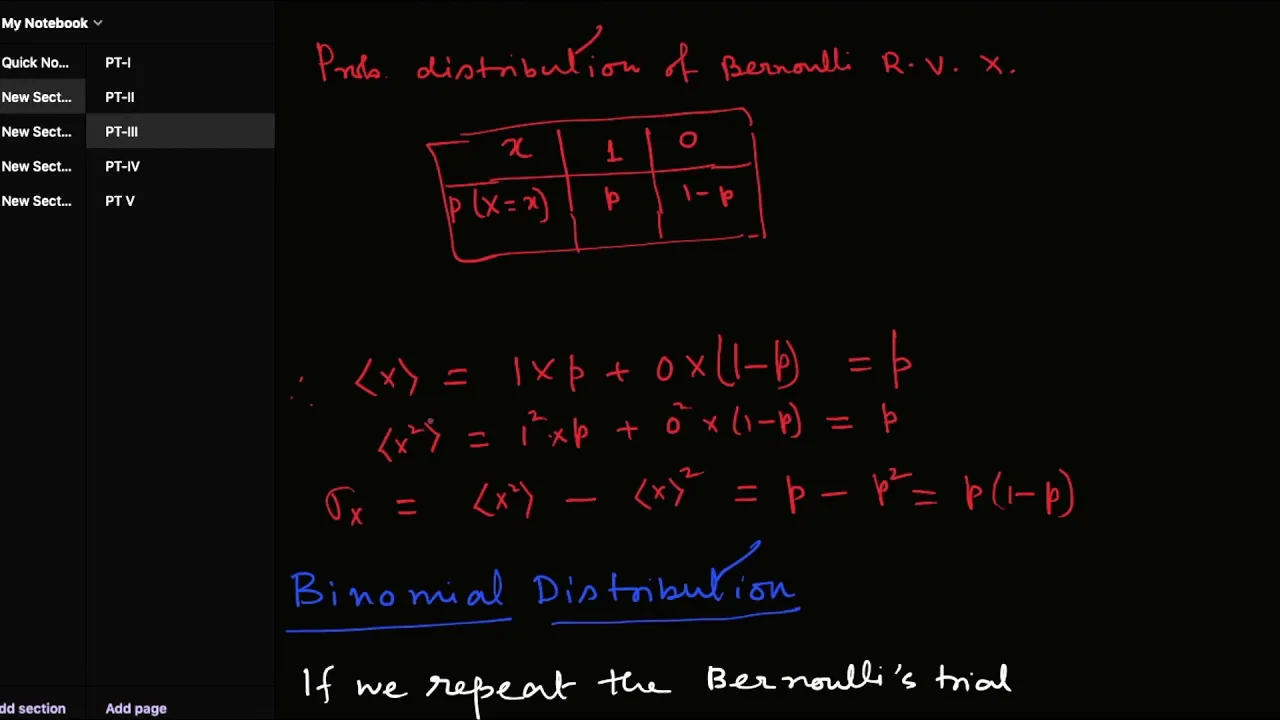 My Notebook
Quick No...
New Sect...
New Sect...
New Sect...
New Sect...
PT-I
PT-II
PT-III
PT-IV
PT V
dd section
Add page
Prob. distribution of Bernoulli R.V. X.
x 1 0
p(X=x) p 1-p
∴ ⟨x⟩ = 1×p + 0×(1-p) = p
⟨x²⟩ = 1²×p + 0²×(1-p) = p
σx = ⟨x²⟩ - ⟨x⟩² = p - p² = p(1-p)
Binomial Distribution
If we repeat the Bernoulli's trial